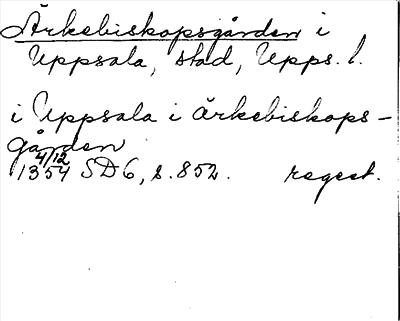 Ärkebiskopsgården i
Uppsala, stad, Upps. l.
i Uppsala i ärkebiskops-
gården
4/12
1354 SD6, s. 852. regest.